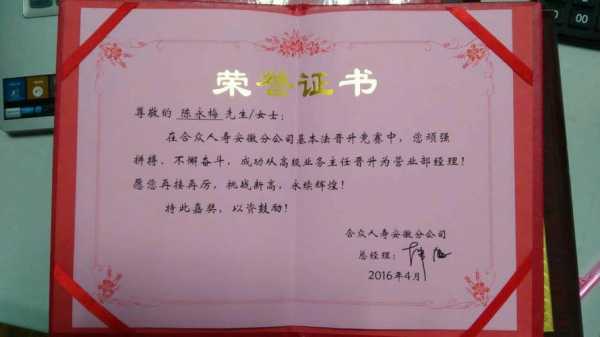 荣誉证书
尊敬的 陈永梅 先生/女士：
在合众人寿安徽分公司基本法晋升竞赛中，您顽强
拼搏，不懈奋斗，成功从高级业务主任晋升为营业部经理！
愿您再接再厉，挑战新高，永续辉煌！
特此嘉奖，以资鼓励！
合众人寿安徽分公司
总经理：
2016年4月
00